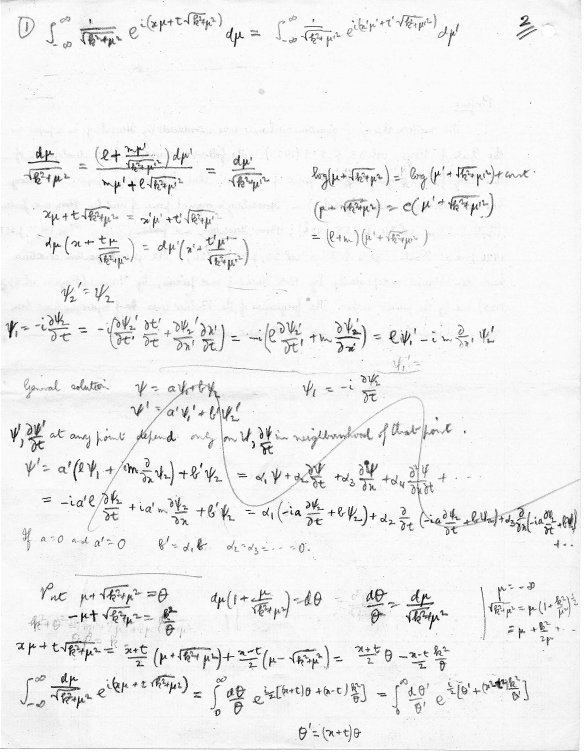 ① ∫_{-∞}^{∞} i/√(k²+μ²) e^{i(xμ+t√(k²+μ²))} dμ = ∫_{-∞}^{∞} i/√(k²+μ'²) e^{i(x'μ'+t'√(k²+μ'²))} dμ'
2
dμ/√(k²+μ²) = (l + mμ'/√(k²+μ'²)) dμ' / (mμ' + l√(k²+μ'²)) = dμ'/√(k²+μ'²)
log(μ+√(k²+μ²)) = log(μ'+√(k²+μ'²)) + const.
xμ + t√(k²+μ²) = x'μ' + t'√(k²+μ'²)
(μ+√(k²+μ²)) = c(μ'+√(k²+μ'²))
dμ(x + tμ/√(k²+μ²)) = dμ'(x' + t'μ'/√(k²+μ'²))
= (l+m)(μ'+√(k²+μ'²))
ψ₂' = ψ₂
ψ₁ = -i ∂ψ₂/∂t = -i(∂ψ₂'/∂t' ∂t'/∂t + ∂ψ₂'/∂x' ∂x'/∂t) = -i(l ∂ψ₂'/∂t' + m ∂ψ₂'/∂x') = lψ₁' - i m ∂/∂x' ψ₂'
ψ₁' =
General solution ψ = aψ₁+bψ₂ ψ₁ = -i ∂ψ₂/∂t
ψ' = a'ψ₁' + b'ψ₂'
ψ', ∂ψ'/∂t at any point depend only on ψ, ∂ψ/∂t in neighbourhood of that point.
ψ' = a'(lψ₁ + im ∂/∂x ψ₂) + b'ψ₂ = α₁ψ + α₂ ∂ψ/∂t + α₃ ∂ψ/∂x + α₄ ∂²ψ/∂x∂t + ····
= -ia'l ∂ψ₂/∂t + ia'm ∂ψ₂/∂x + b'ψ₂ = α₁(-ia ∂ψ₂/∂t + bψ₂) + α₂ ∂/∂t(-ia ∂ψ₂/∂t + bψ₂) + α₃ ∂/∂x(-ia ∂ψ₂/∂t + bψ₂)
+ ···
If a=0 and a'=0 b'=α₁b α₂=α₃=···=0.
Put μ+√(k²+μ²) = θ dμ(1+ μ/√(k²+μ²)) = dθ dθ/θ = dμ/√(k²+μ²)
μ = -∞
-μ+√(k²+μ²) = k²/θ
√(k²+μ²) = μ(1+k²/μ²)^{½}
= μ + k²/2μ + ··
xμ + t√(k²+μ²) = (x+t)/2 (μ+√(k²+μ²)) + (x-t)/2 (μ-√(k²+μ²)) = (x+t)/2 θ - (x-t)/2 k²/θ
∫_{-∞}^{∞} dμ/√(k²+μ²) e^{i(xμ+t√(k²+μ²))} = ∫_{0}^{∞} dθ/θ e^{i½[(x+t)θ+(x-t)k²/θ]} = ∫_{0}^{∞} dθ'/θ' e^{i/2[θ'+(x²-t²)k²/θ']}
θ' = (x+t)θ